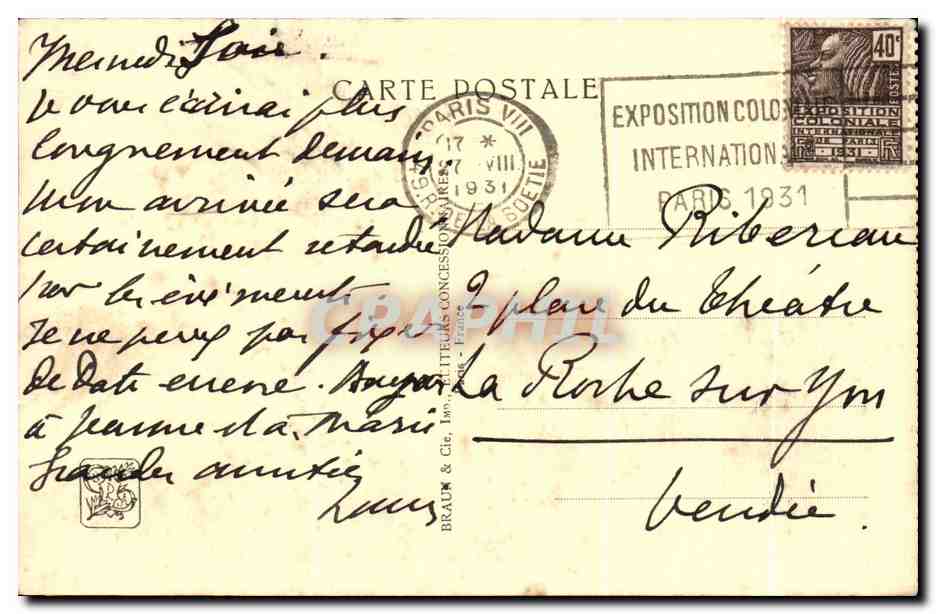 Mercredi Soir.
Je vous écrirai plus
longuement demain.
Mon arrivée sera
certainement retardée
par les événements
Je ne peux pas fixer
de date encore. Baisers
à Jeanne et à Marie
Grandes amitiés
Louis
CARTE POSTALE
PARIS VIII
17 *
VIII
1931
R. DE LA BOETIE
EXPOSITION COLO
INTERNATION
PARIS 1931
40c
POSTES
EXPOSITION
COLONIALE
INTERNATIONALE
DE PARIS
1931
RF RF
Madame Ribereau
2 place du Théâtre
La Roche sur Yon
Vendée.
BRAUN & Cie, Imp., EDITEURS CONCESSIONNAIRES
Paris - France
CPAPHIL